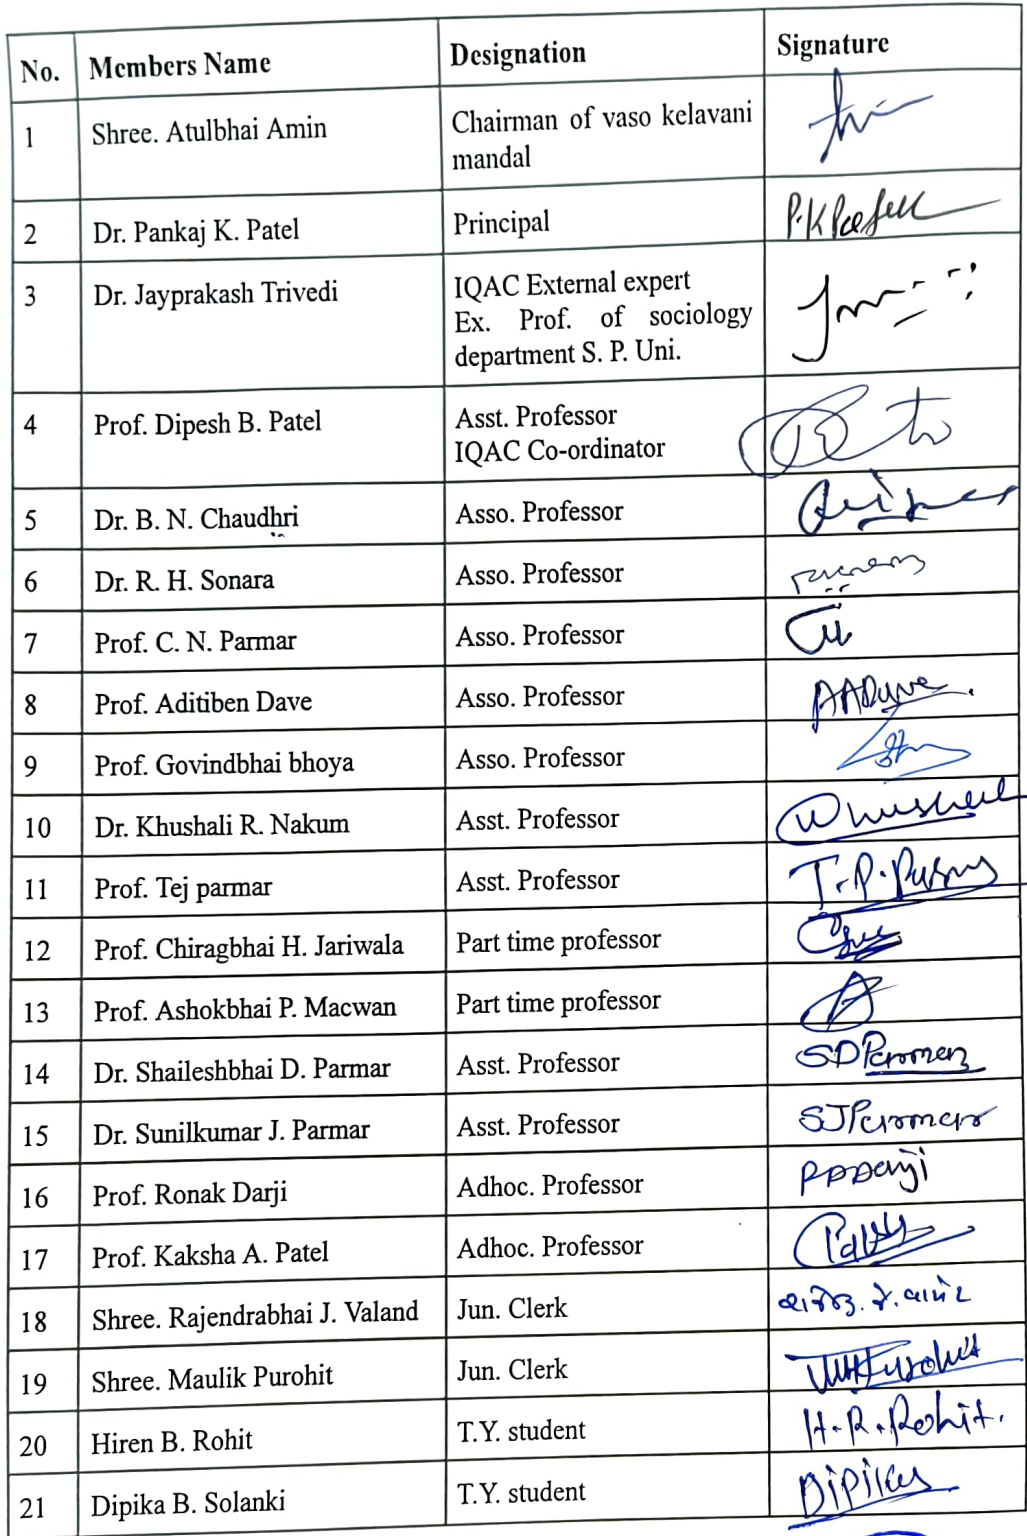 No. Members Name Designation Signature
1 Shree. Atulbhai Amin Chairman of vaso kelavani
mandal
2 Dr. Pankaj K. Patel Principal P.K Patel
3 Dr. Jayprakash Trivedi IQAC External expert
Ex. Prof. of sociology
department S. P. Uni.
4 Prof. Dipesh B. Patel Asst. Professor
IQAC Co-ordinator
5 Dr. B. N. Chaudhri Asso. Professor
6 Dr. R. H. Sonara Asso. Professor
7 Prof. C. N. Parmar Asso. Professor
8 Prof. Aditiben Dave Asso. Professor
9 Prof. Govindbhai bhoya Asso. Professor
10 Dr. Khushali R. Nakum Asst. Professor
11 Prof. Tej parmar Asst. Professor
12 Prof. Chiragbhai H. Jariwala Part time professor
13 Prof. Ashokbhai P. Macwan Part time professor
14 Dr. Shaileshbhai D. Parmar Asst. Professor SDParmar
15 Dr. Sunilkumar J. Parmar Asst. Professor SJParmar
16 Prof. Ronak Darji Adhoc. Professor
17 Prof. Kaksha A. Patel Adhoc. Professor
18 Shree. Rajendrabhai J. Valand Jun. Clerk
19 Shree. Maulik Purohit Jun. Clerk
20 Hiren B. Rohit T.Y. student H.R.Rohit.
21 Dipika B. Solanki T.Y. student Dipika